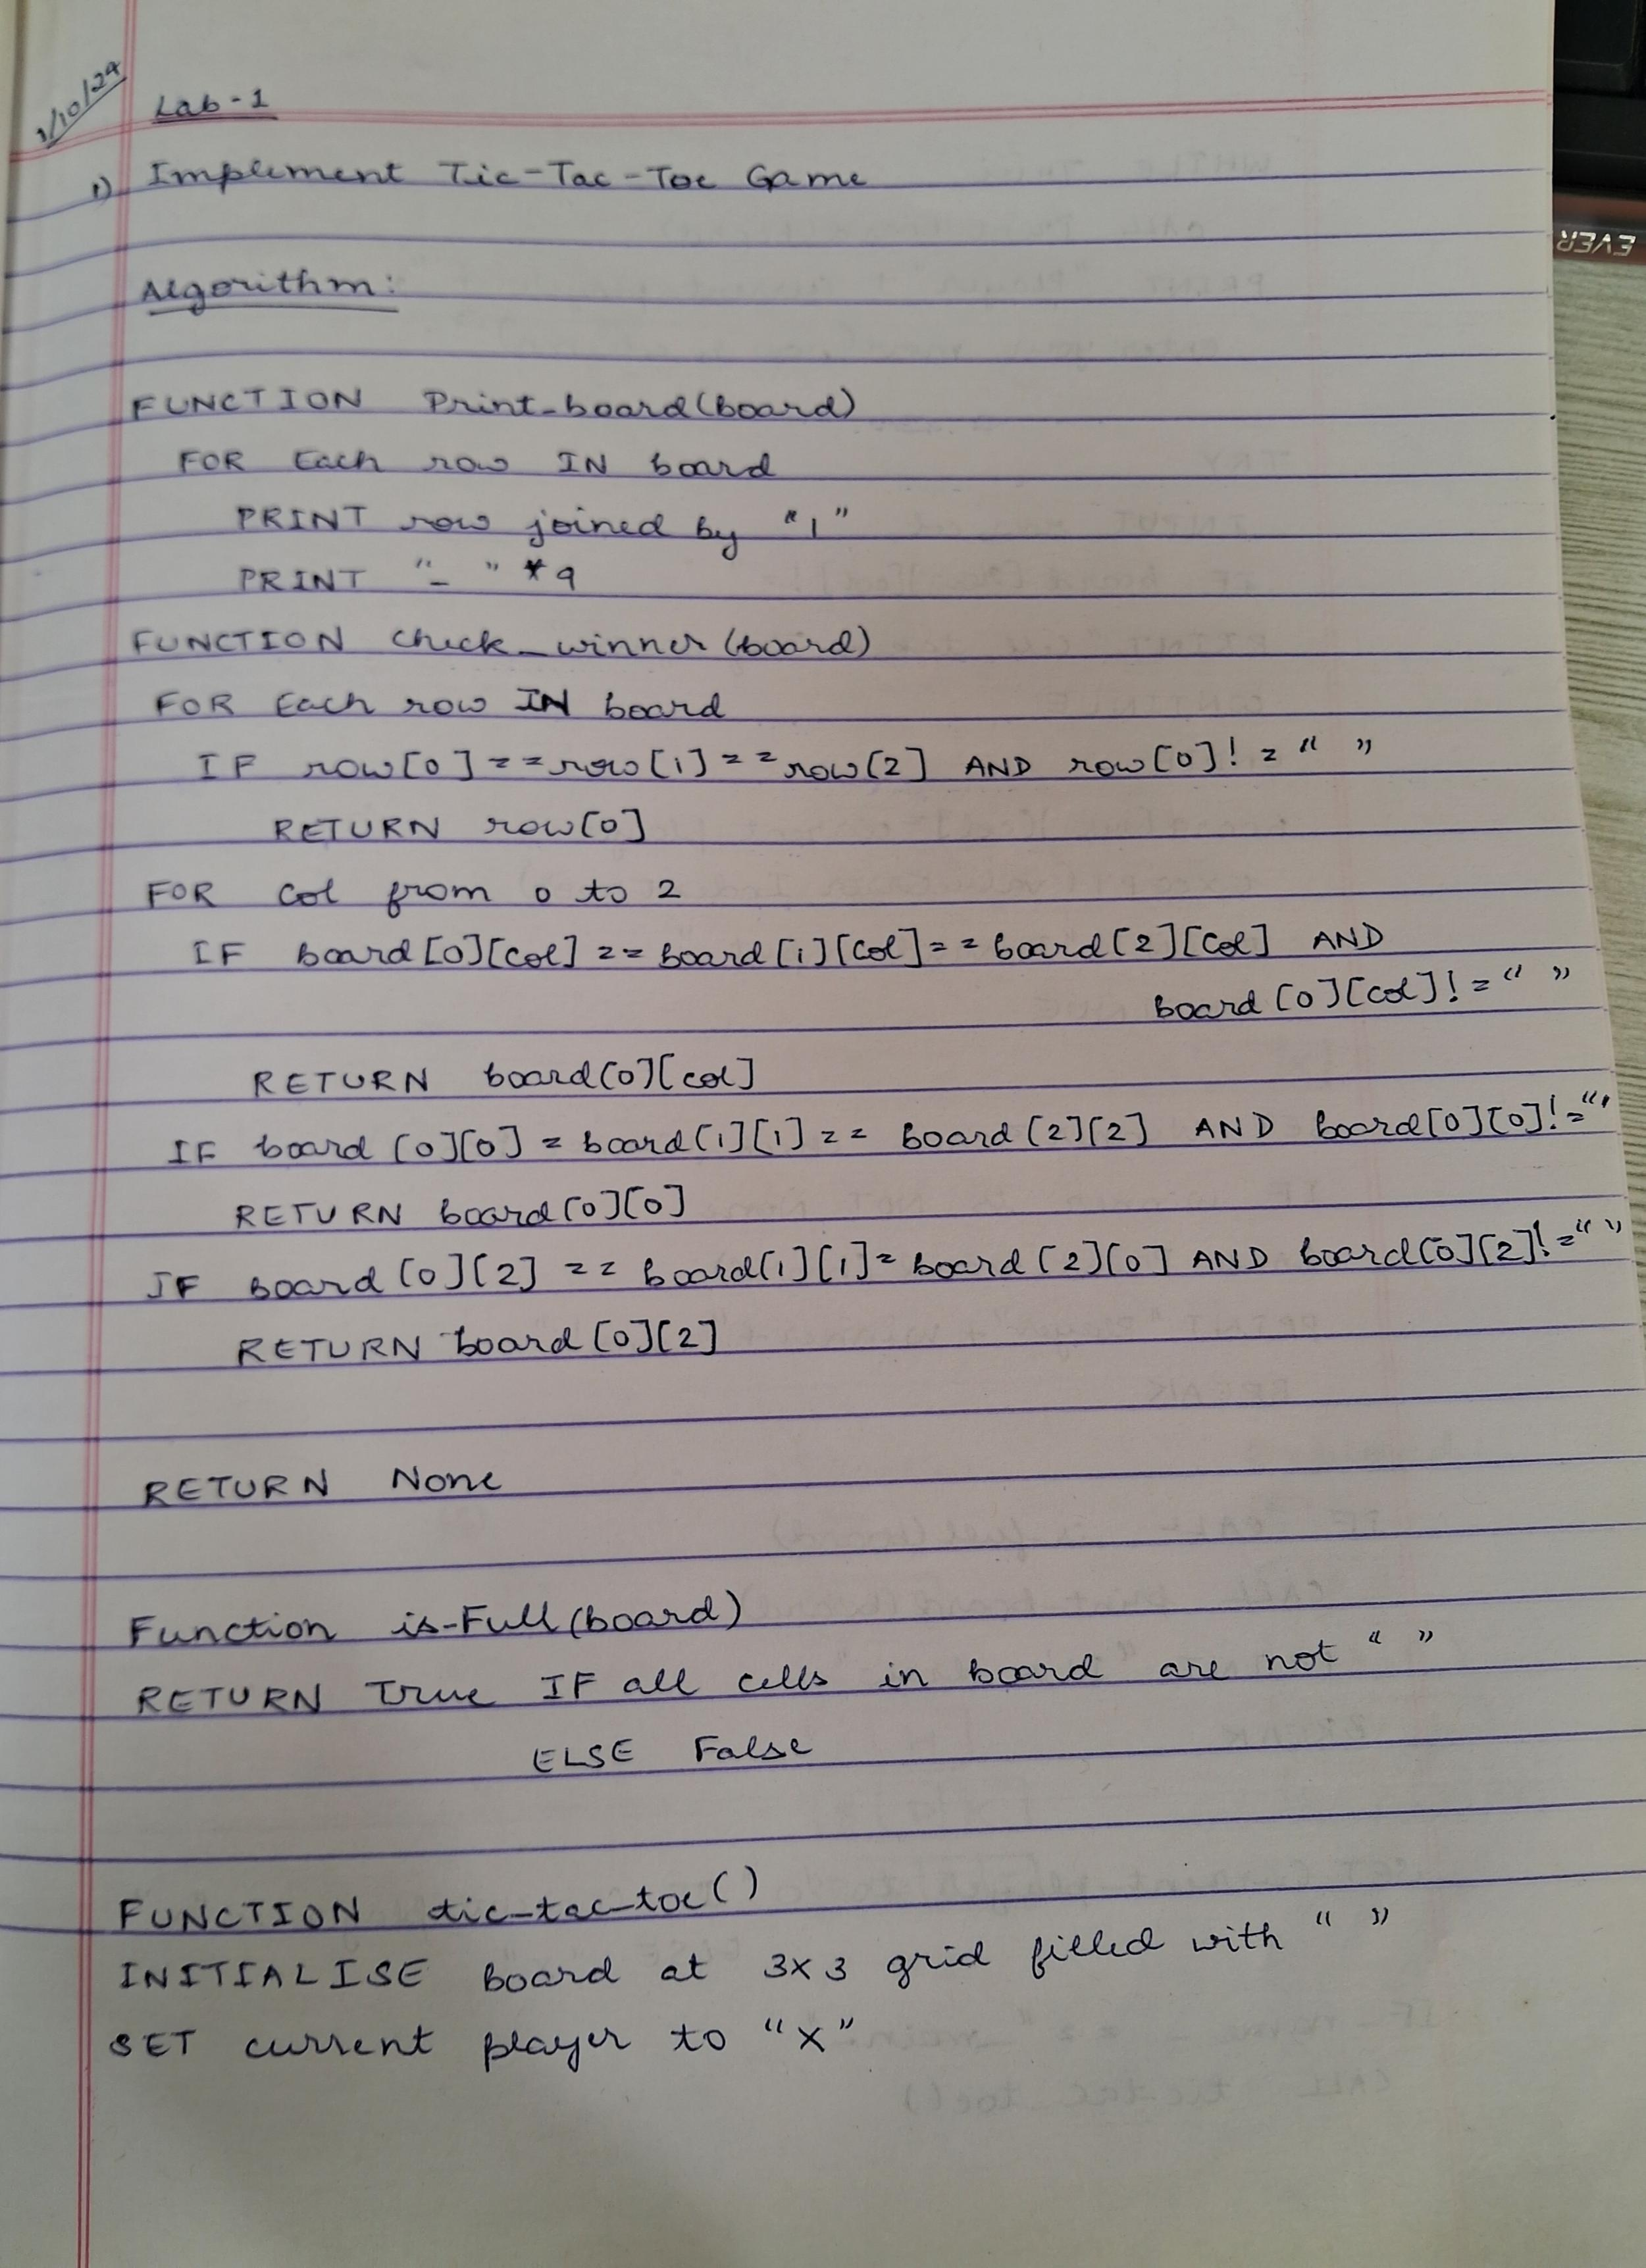 1/10/24
Lab-1
1) Implement Tic-Tac-Toe Game
Algorithm:
FUNCTION Print-board(board)
FOR Each row IN board
PRINT row joined by "|"
PRINT "- " * 9
FUNCTION check_winner(board)
FOR Each row IN board
IF row[0] == row[1] == row[2] AND row[0] != " "
RETURN row[0]
FOR col from 0 to 2
IF board[0][col] == board[1][col] == board[2][col] AND
board[0][col] != " "
RETURN board[0][col]
IF board[0][0] = board[1][1] == board[2][2] AND board[0][0] != " "
RETURN board[0][0]
IF board[0][2] == board[1][1] = board[2][0] AND board[0][2] != " "
RETURN board[0][2]
RETURN None
Function is-Full(board)
RETURN True IF all cells in board are not " "
ELSE False
FUNCTION tic-tac-toe()
INITIALISE board at 3x3 grid filled with " "
SET current player to "X"
EVER